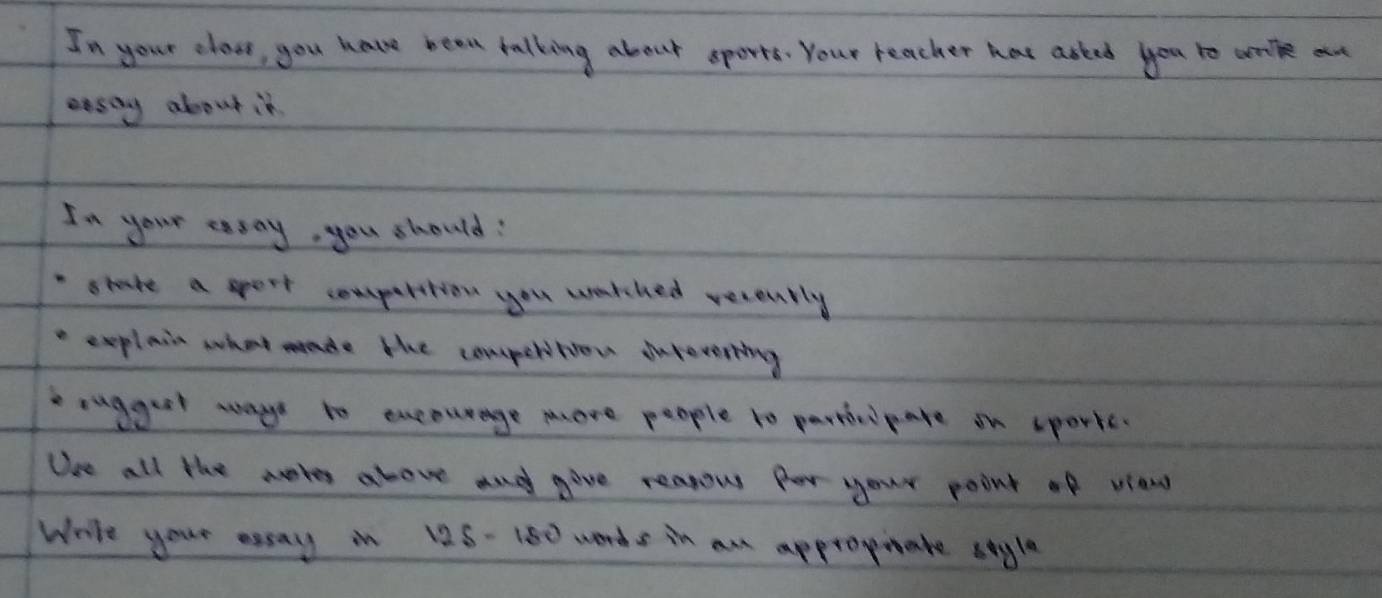 In your class, you have been talking about sports. Your teacher has asked you to write an
essay about it.
In your essay, you should:
• state a sport competition you watched recently
• explain what made the competition interesting
• suggest ways to encourage more people to participate in sports.
Use all the notes above and give reasons for your point of view
Write your essay in 125-180 words in an appropriate style